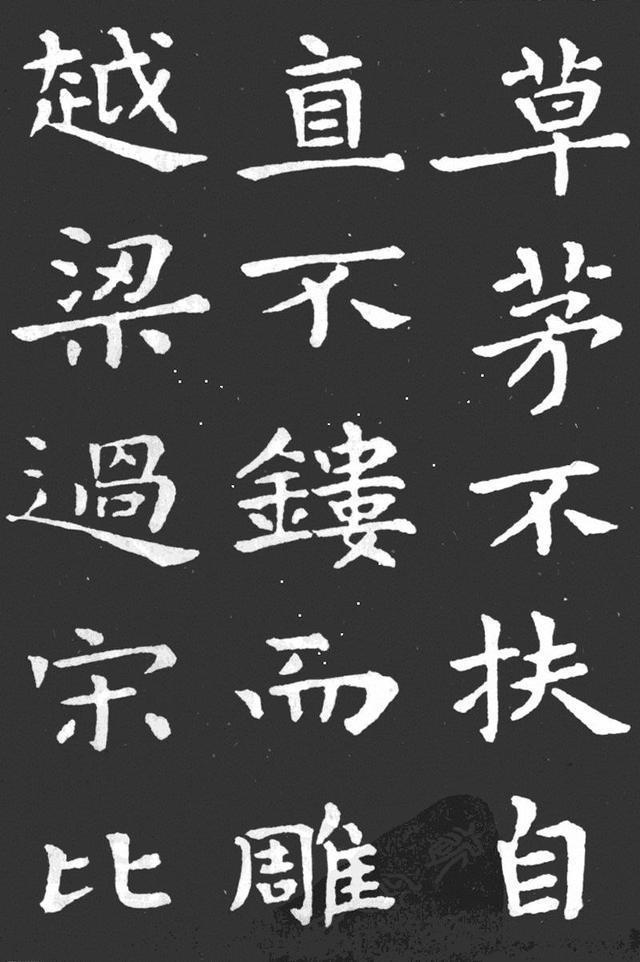 草茅不扶自
直不鏤而雕
越梁過宋比